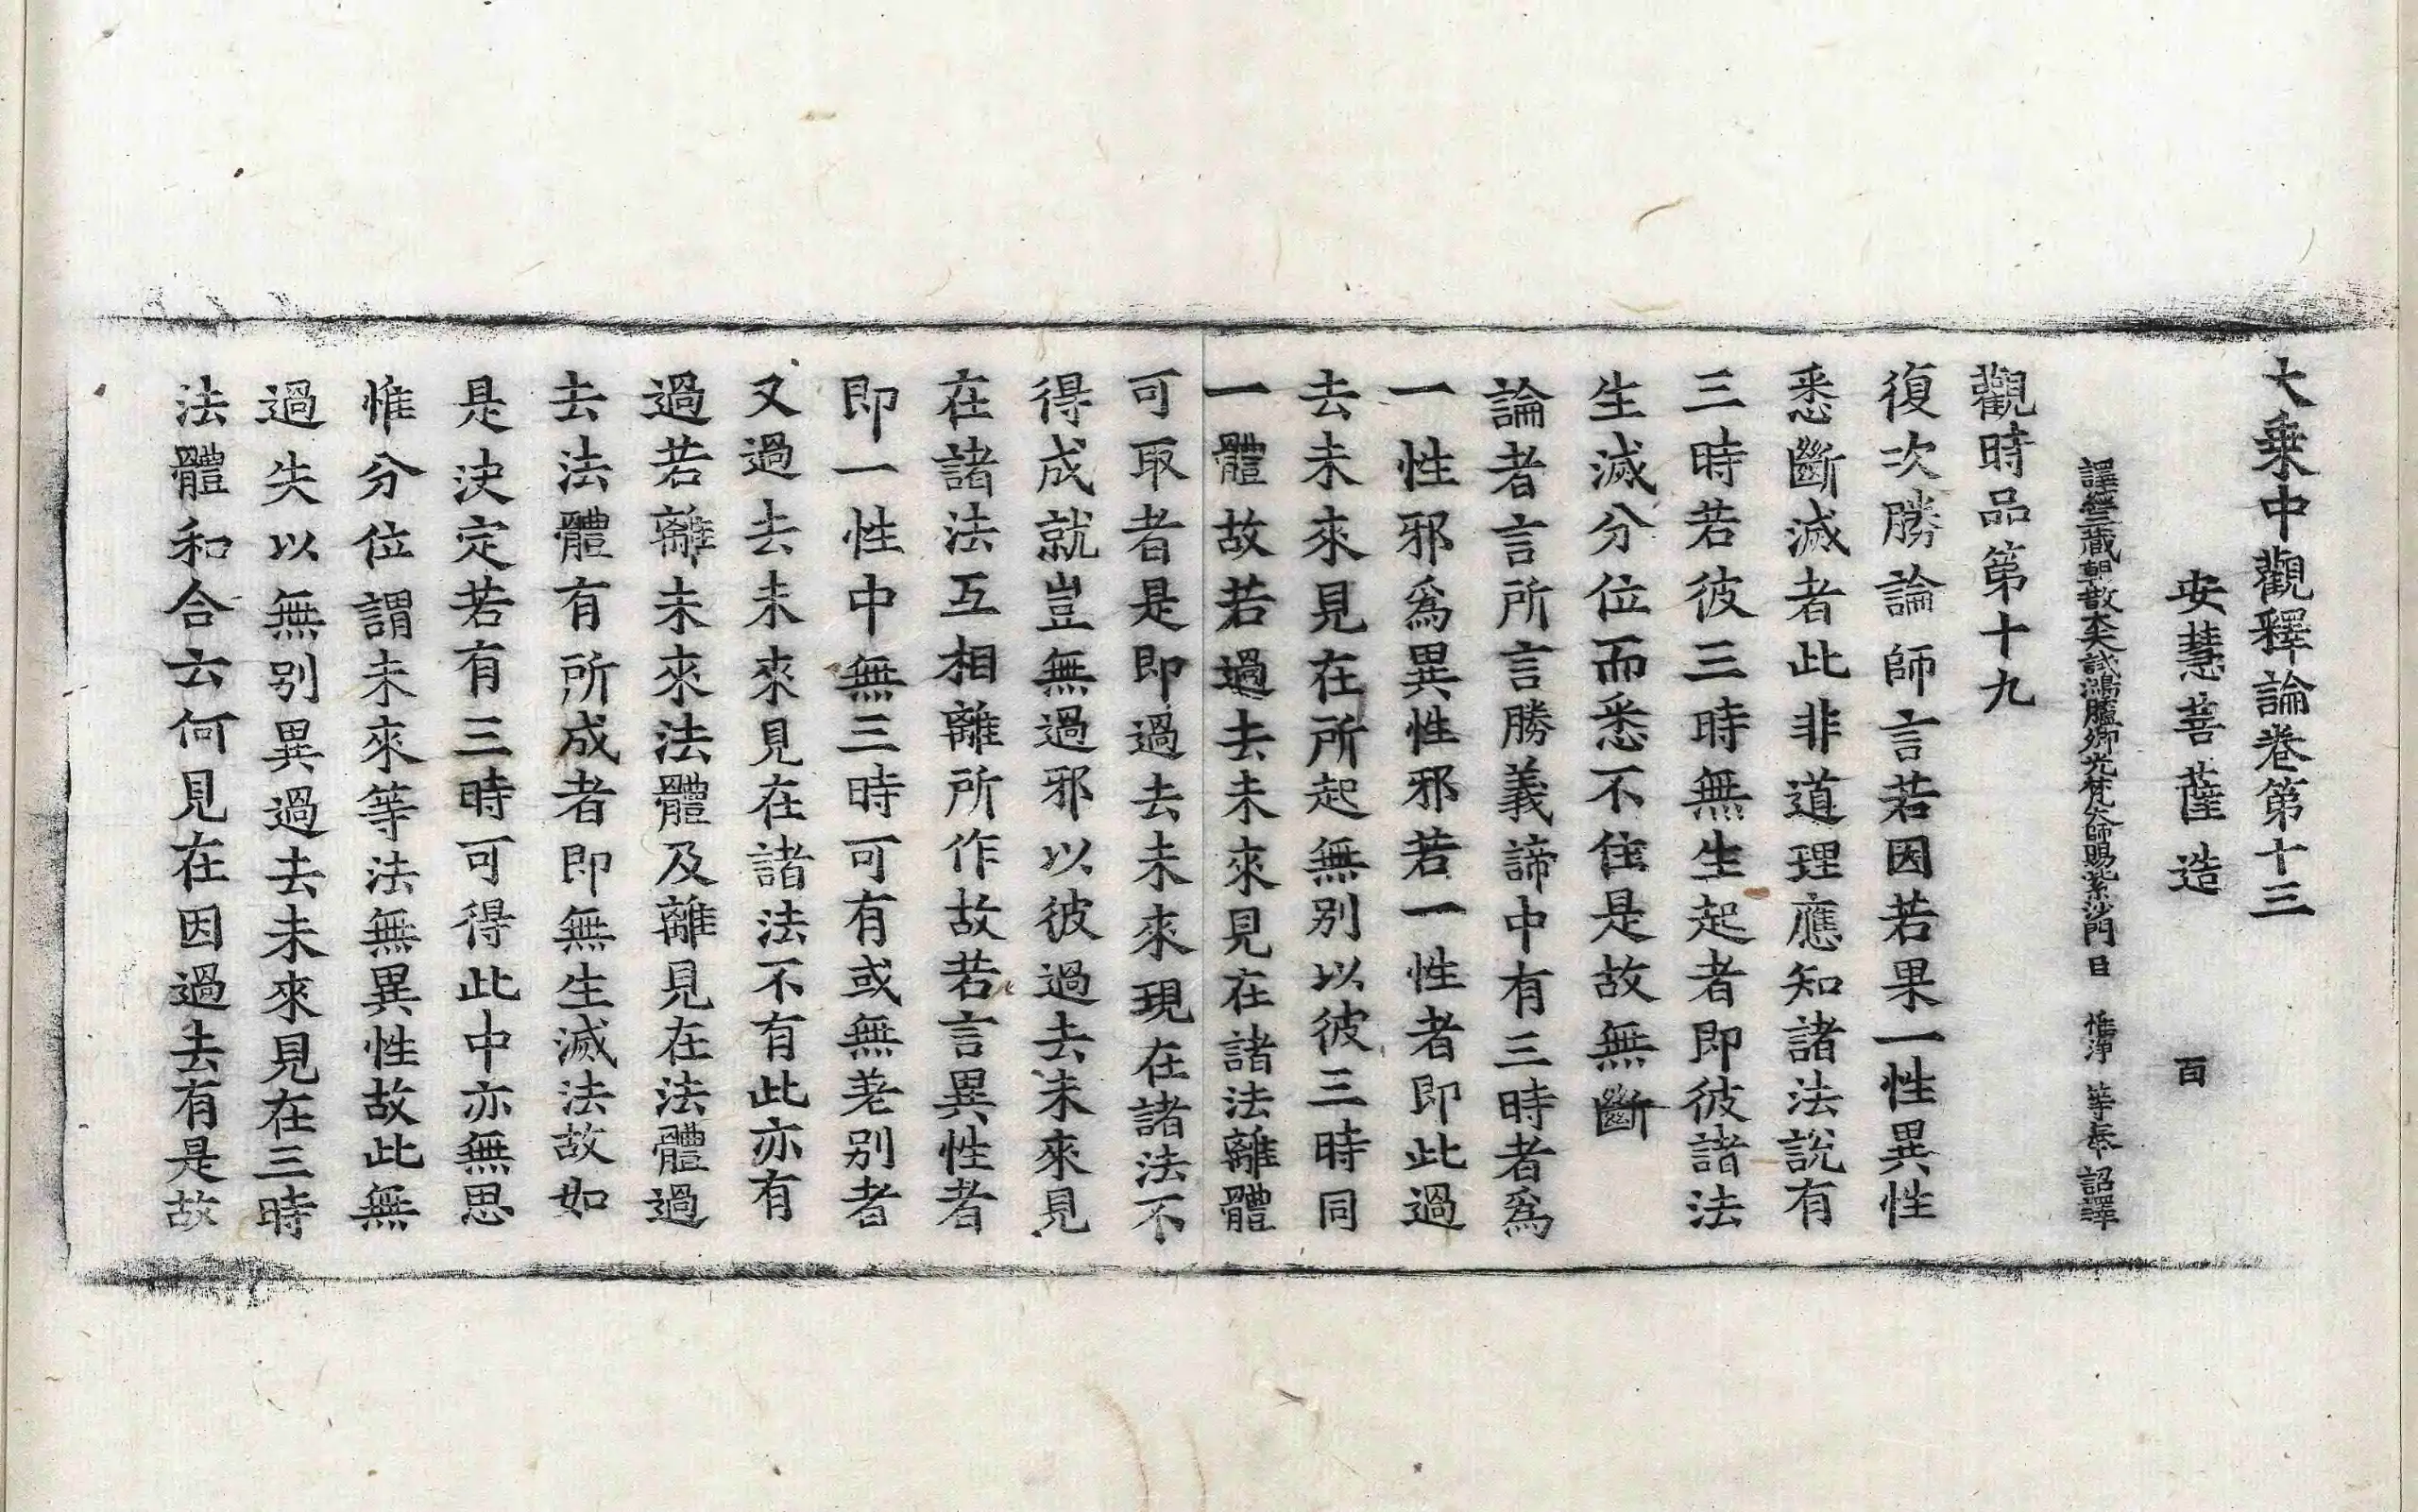 大乗中觀釋論卷第十三
安慧菩薩造　百
譯經三藏朝散大夫試鴻臚卿光梵大師賜紫沙門臣　惟淨　等奉　詔譯
觀時品第十九
復次勝論師言若因若果一性異性
悉斷滅者此非道理應知諸法說有
三時若彼三時無生起者即彼諸法
生滅分位而悉不住是故無斷
論者言所言勝義諦中有三時者爲
一性邪爲異性邪若一性者即此過
去未來見在所起無别以彼三時同
一體故若過去未來見在諸法離體
可取者是即過去未來現在諸法不
得成就豈無過邪以彼過去未來見
在諸法互相離所作故若言異性者
即一性中無三時可有或無差别者
又過去未來見在諸法不有此亦有
過若離未來法體及離見在法體過
去法體有所成者即無生滅法故如
是決定若有三時可得此中亦無思
惟分位謂未來等法無異性故此無
過失以無别異過去未來見在三時
法體和合云何見在因過去有是故